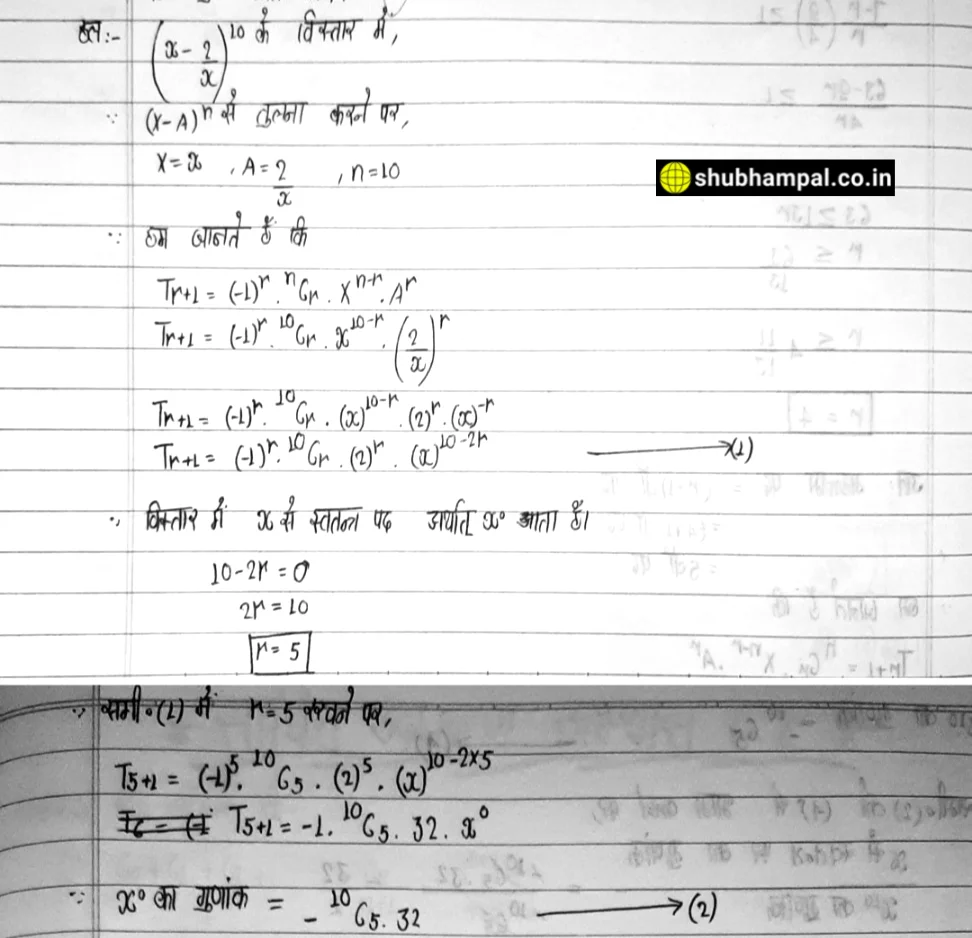 हल:- (x - 2/x)^10 के विस्तार में,
∵ (X-A)^n से तुलना करने पर,
X = x , A = 2/x , n = 10
shubhampal.co.in
∵ हम जानते हैं कि
Tr+1 = (-1)^r . ^nCr . X^n-r . A^r
Tr+1 = (-1)^r . ^10Cr . x^10-r . (2/x)^r
Tr+1 = (-1)^r . ^10Cr . (x)^10-r . (2)^r . (x)^-r
Tr+1 = (-1)^r . ^10Cr . (2)^r . (x)^10-2r ⟶ (1)
∵ विस्तार में x से स्वतन्त्र पद अर्थात् x° आता है।
10-2r = 0
2r = 10
r = 5
∵ समी०(1) में r=5 रखने पर,
T5+1 = (-1)^5 . ^10C5 . (2)^5 . (x)^10-2×5
T5+1 = -1. ^10C5. 32. x°
∵ x° का गुणांक = - ^10C5. 32 ⟶ (2)